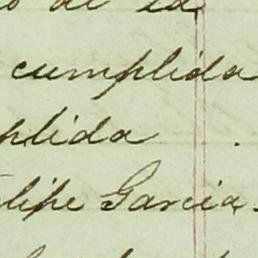 de la
cumplida
plida .
elipe Garcia.